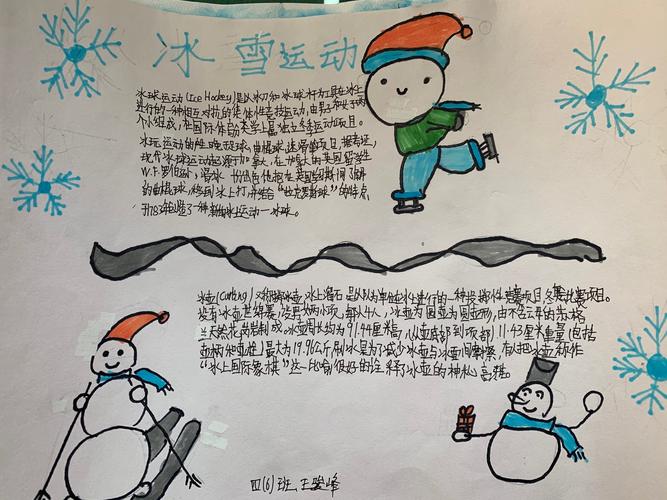 冰雪运动
冰球运动(Ice Hockey)是以冰刀和冰球杆为工具在冰上
进行的一种相互对抗的集体性竞技运动,由男子和女子两
个小组成,在国际体育分类学上属独立冬季运动项目。
冰球运动的
现代冰球运动起源于加拿大,在加拿大的英国留学生
W.F.罗伯逊,
的曲棍球,移到冰上打,并结合“拉克罗斯球”的特点
创造了一种新的冰上运动一冰球。
冰壶(Curling)又称掷冰壶,冰上溜石是以队为单位在冰上进行的一种投掷性竞赛项目,冬奥比赛项目。
设有冰壶世锦赛,设男女两小项,每队4人,冰壶为圆壶为圆壶形,由不含云母的苏格
兰天然花岗岩制成,冰壶周长约为91.44厘米高(从壶底部到顶部)11.43厘米重量(包括
壶柄和螺栓)最大为19.96公斤,刷冰是为了减少冰壶与冰面间摩擦,有人把冰壶称作
“冰上国际象棋”这一比喻很好的诠释了冰壶的神秘,高雅
四(6)班 王